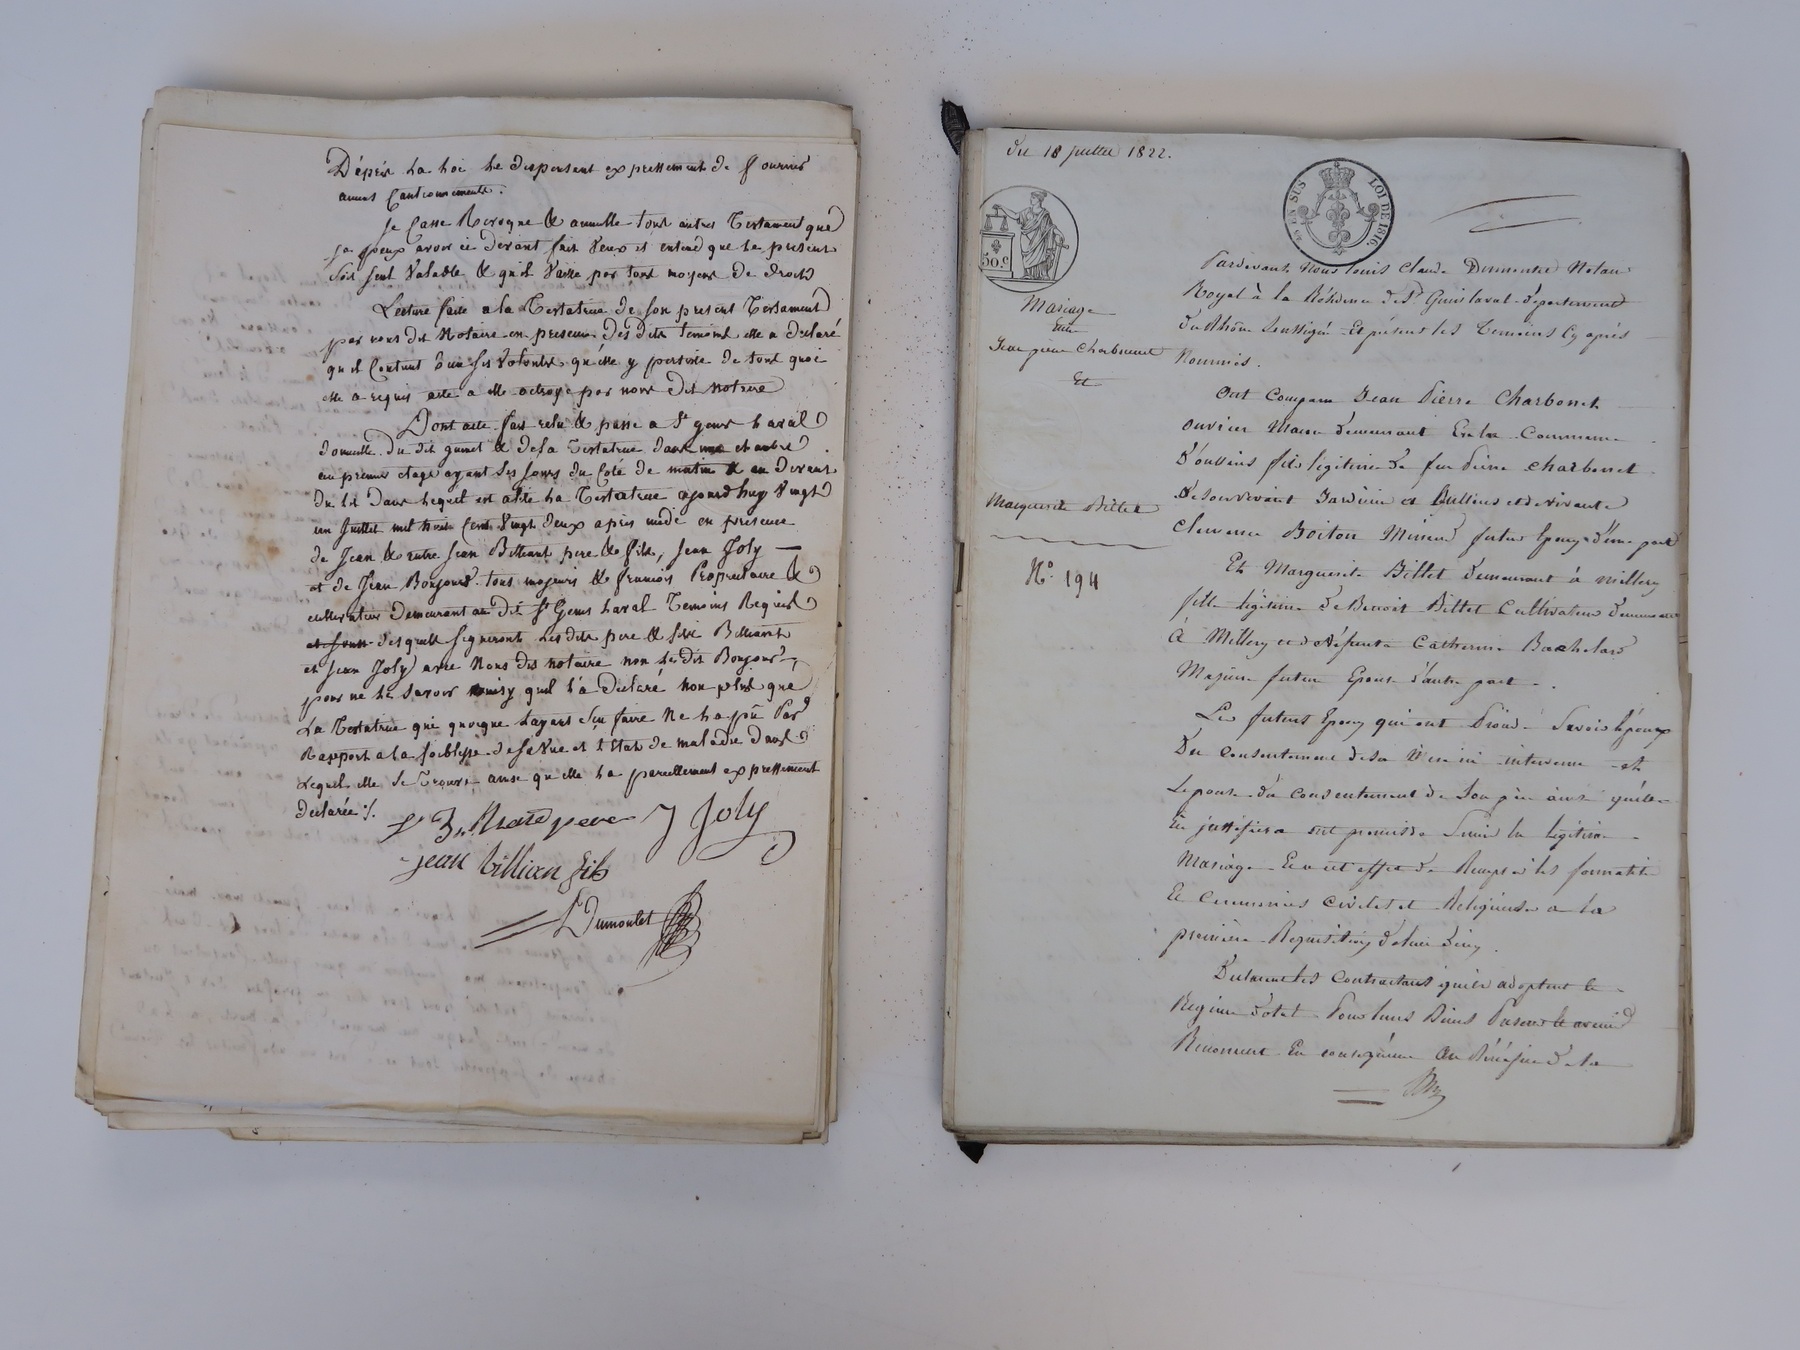 Dépès la loi le dispensent expressement de fournir
aucuns Cautionnements.
Je Casse Revoque & annulle tout autres Testament que
je peux avoir ci devant fait Veux et entend que le present
soit seul Valable & qu'il Vaille par tous moyens de droits
Lecture faite a la Testatrice de son present Testament
par nous dit Notaire en presence des dits temoins elle a declaré
qu'il Contient bien ses Volontés qu'elle y persiste de tout quoi
elle a requis acte a elle octroyé par nous dit notaire
Dont acte fait relu & passé a St genis Laval
domicille du dit & de la Testatrice dans
au premier etage ayant ses jours du Cote de matin & au devant
du lit dans lequel est alité la Testatrice ajourd'huy Vingt
un Juillet mil huit Cent Vingt deux après midi en presence
de Jean & autre Jean Billiant pere & fils, Jean Joly
et de Jean Bonjour tous majeurs & français Proprietaire &
cultivateur demeurant au dit St Genis Laval Temoins Requis
desquels signeront Les dits pere & fils Billiant
et Jean Joly avec Nous dit notaire non le dit Bonjour
pour ne le savoir qu'il l'a declaré non plus que
La Testatrice qui quoique Layant sçu faire Ne la pû Par
Rapport a la foiblesse de sa Vue et l'Etat de maladie dans
Lequel elle se trouve ainsi qu'elle l'a pareillement expressement
declarée ./.
pere J Joly
jean billian fils
Dumoulet
du 18 juillet 1822.
EN SUS LOI DE 1816.
50.c
Mariage
Entre
Jean pierre Charbonnet
Et
Marguerite Billet
N.o 194
Pardevant Nous Louis Claude Notaire
Royal à la Résidence de St Genis laval département
du Rhône Soussigné Et présent les Temoins Cy après
Nommés.
Ont Comparu Jean Pierre Charbonnet
ouvrier Maçon demeurant En la Commune
d'oullins fils légitime de feu Pierre Charbonnet
de son vivant Jardinier et de vivante
Clemence Boiton Mineur futur Epoux d'une part
Et Marguerite Billet demeurant à Millery
fille légitime de Benoit Billet Cultivateur demeurant
à Millery et de défunte Catherine Bachelard
Majeure future Epouse d'autre part.
Les futurs Epoux qui ont Savoir l'époux
Du consentement de sa Mère ici intervenue et
L'épouse du consentement de son père ainsi qu'elle
En justifiera ont promis de S'unir en légitime
Mariage Et a cet effet de Remplir les formalités
Et Ceremonies Civiles et Religieuses a la
première Requisition de l'un d'eux.
Declarent les Contractans qu'ils adoptent le
Régime Dotal Pour leurs Biens
Renoncent En conséquence Au Bénéfice de la